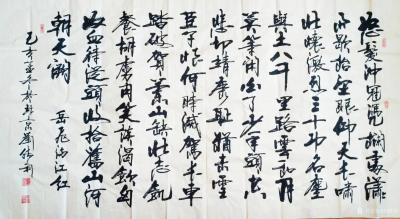 怒髮沖冠憑欄處瀟
雨歇抬望眼仰天長嘯
壯懷激烈三十功名塵
與土八千里路雲和月
莫等閒白了少年頭空
悲切靖康恥猶未雪
臣子恨何時滅駕長車
踏破賀蘭山缺壯志飢
餐胡虜肉笑談渴飲匈
奴血待從頭收拾舊山河
朝天闕 岳飛滿江紅
己亥